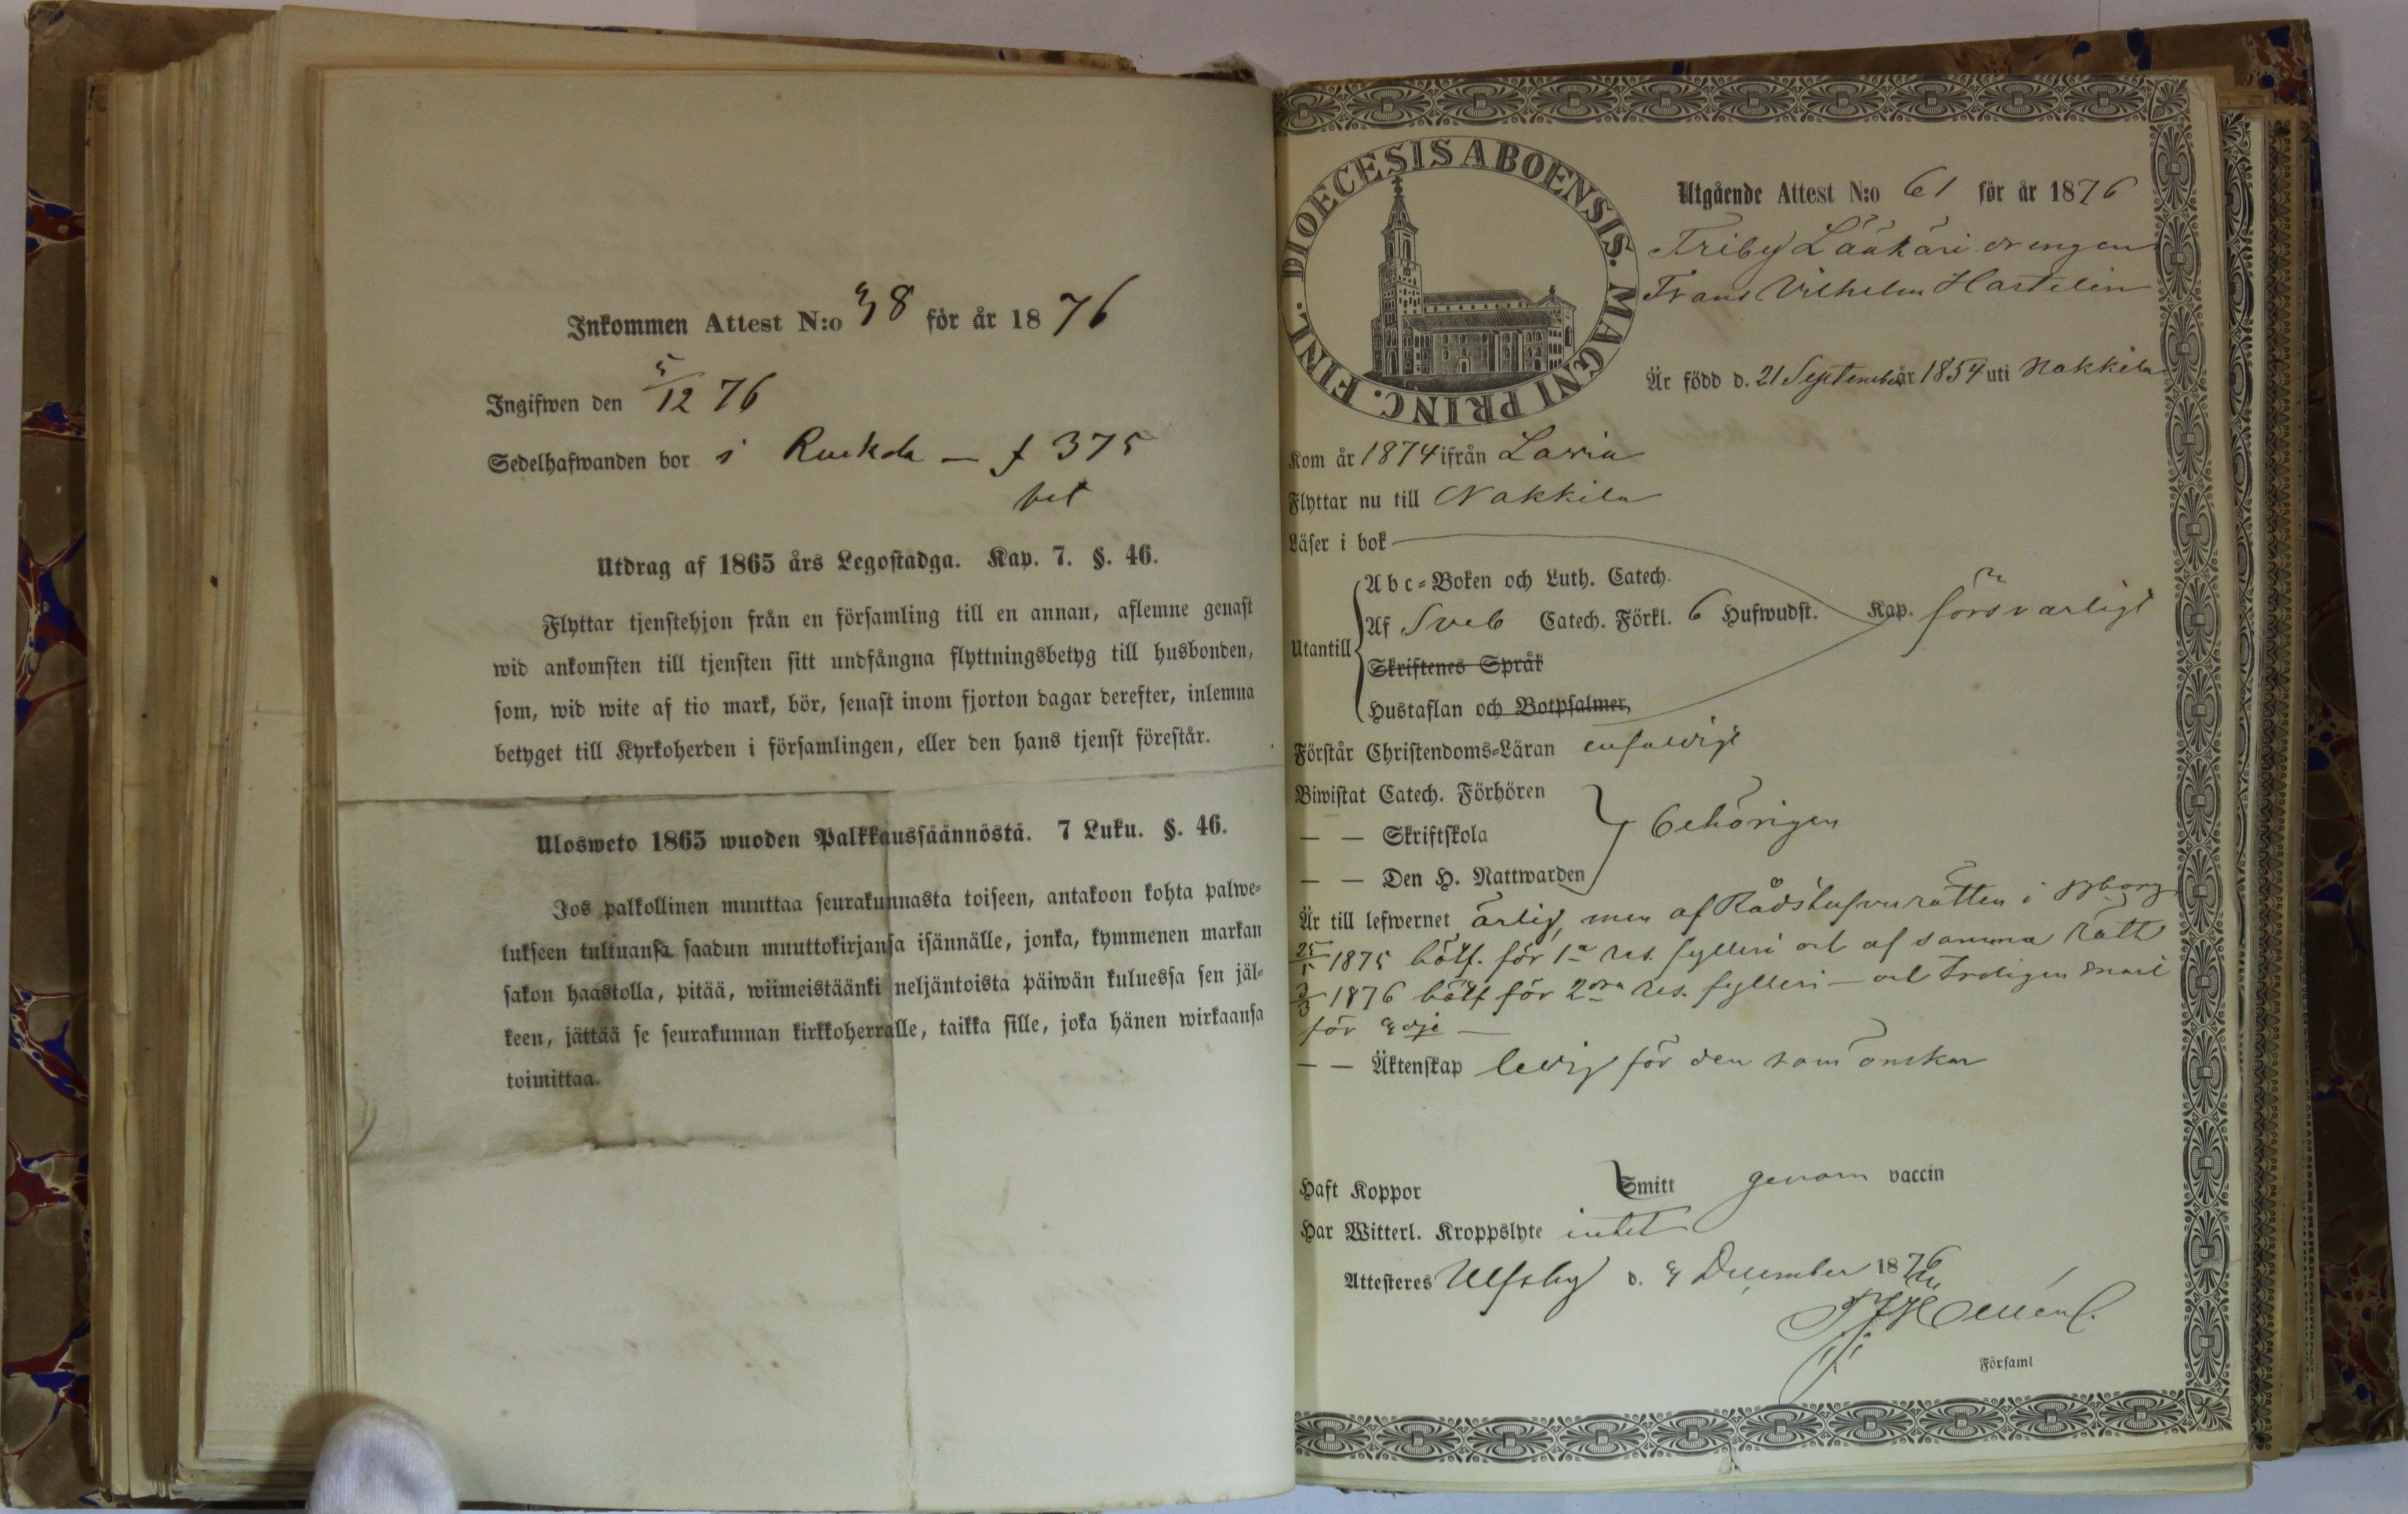 Inkommen Attest N:o 38 för år 1876
Ingifwen den 5/12 76
Sedelhafwanden bor i Ruskela — f 375
bet
Utdrag af 1865 års Legostadga. Kap. 7. §. 46.
Flyttar tjenstehjon från en församling till en annan, aflemne genast
wid ankomsten till tjensten sitt undfångna flyttningsbetyg till husbonden,
som, wid wite af tio mark, bör, senast inom fjorton dagar derefter, inlemna
betyget till Kyrkoherden i församlingen, eller den hans tjenst förestår.
Ulosweto 1865 wuoden Palkkaussäännöstä. 7 Luku. §. 46.
Jos palkollinen muuttaa seurakunnasta toiseen, antakoon kohta palwe-
lukseen tultuansa saadun muuttokirjansa isännälle, jonka, kymmenen markan
sakon haastolla, pitää, wiimeistäänki neljäntoista päiwän kuluessa sen jäl-
keen, jättää se seurakunnan kirkkoherralle, taikka sille, joka hänen wirkaansa
toimittaa.
DIOECESIS ABOENSIS. MAGNI PRINC. FINL.
Utgående Attest N:o 61 för år 1876
Friby Lääkäri drengen
Frans Vilhelm Hastelin
Är född d. 21 September år 1854 uti Nakkila
Kom år 1874 ifrån Lavia
Flyttar nu till Nakkila
Läser i bok
Utantill
Abc-Boken och Luth. Catech.
Af Sveb Catech. Förkl. 6 Hufwudst. Kap. försvarligt
Skriftenes Språk
Hustaflan och Botpsalmer,
Förstår Christendoms-Läran enfaldigt
Biwistat Catech. Förhören
— — Skriftskola behörigen
— — Den H. Nattwarden
Är till lefwernet ärlig, men af Rådstufvurätten i Bborg
25/5 1875 bötf. för 1a res. fylleri och af samma Rätt
3/3 1876 bötf för 2dra res. fylleri — och troligen snart
för 3dje —
— — Äktenskap ledig för den som önskar
Haft Koppor Smitt genom vaccin
Har Witterl. Kroppslyte intet
Attesteres Ulfsby d. 4 December 1876
Församl